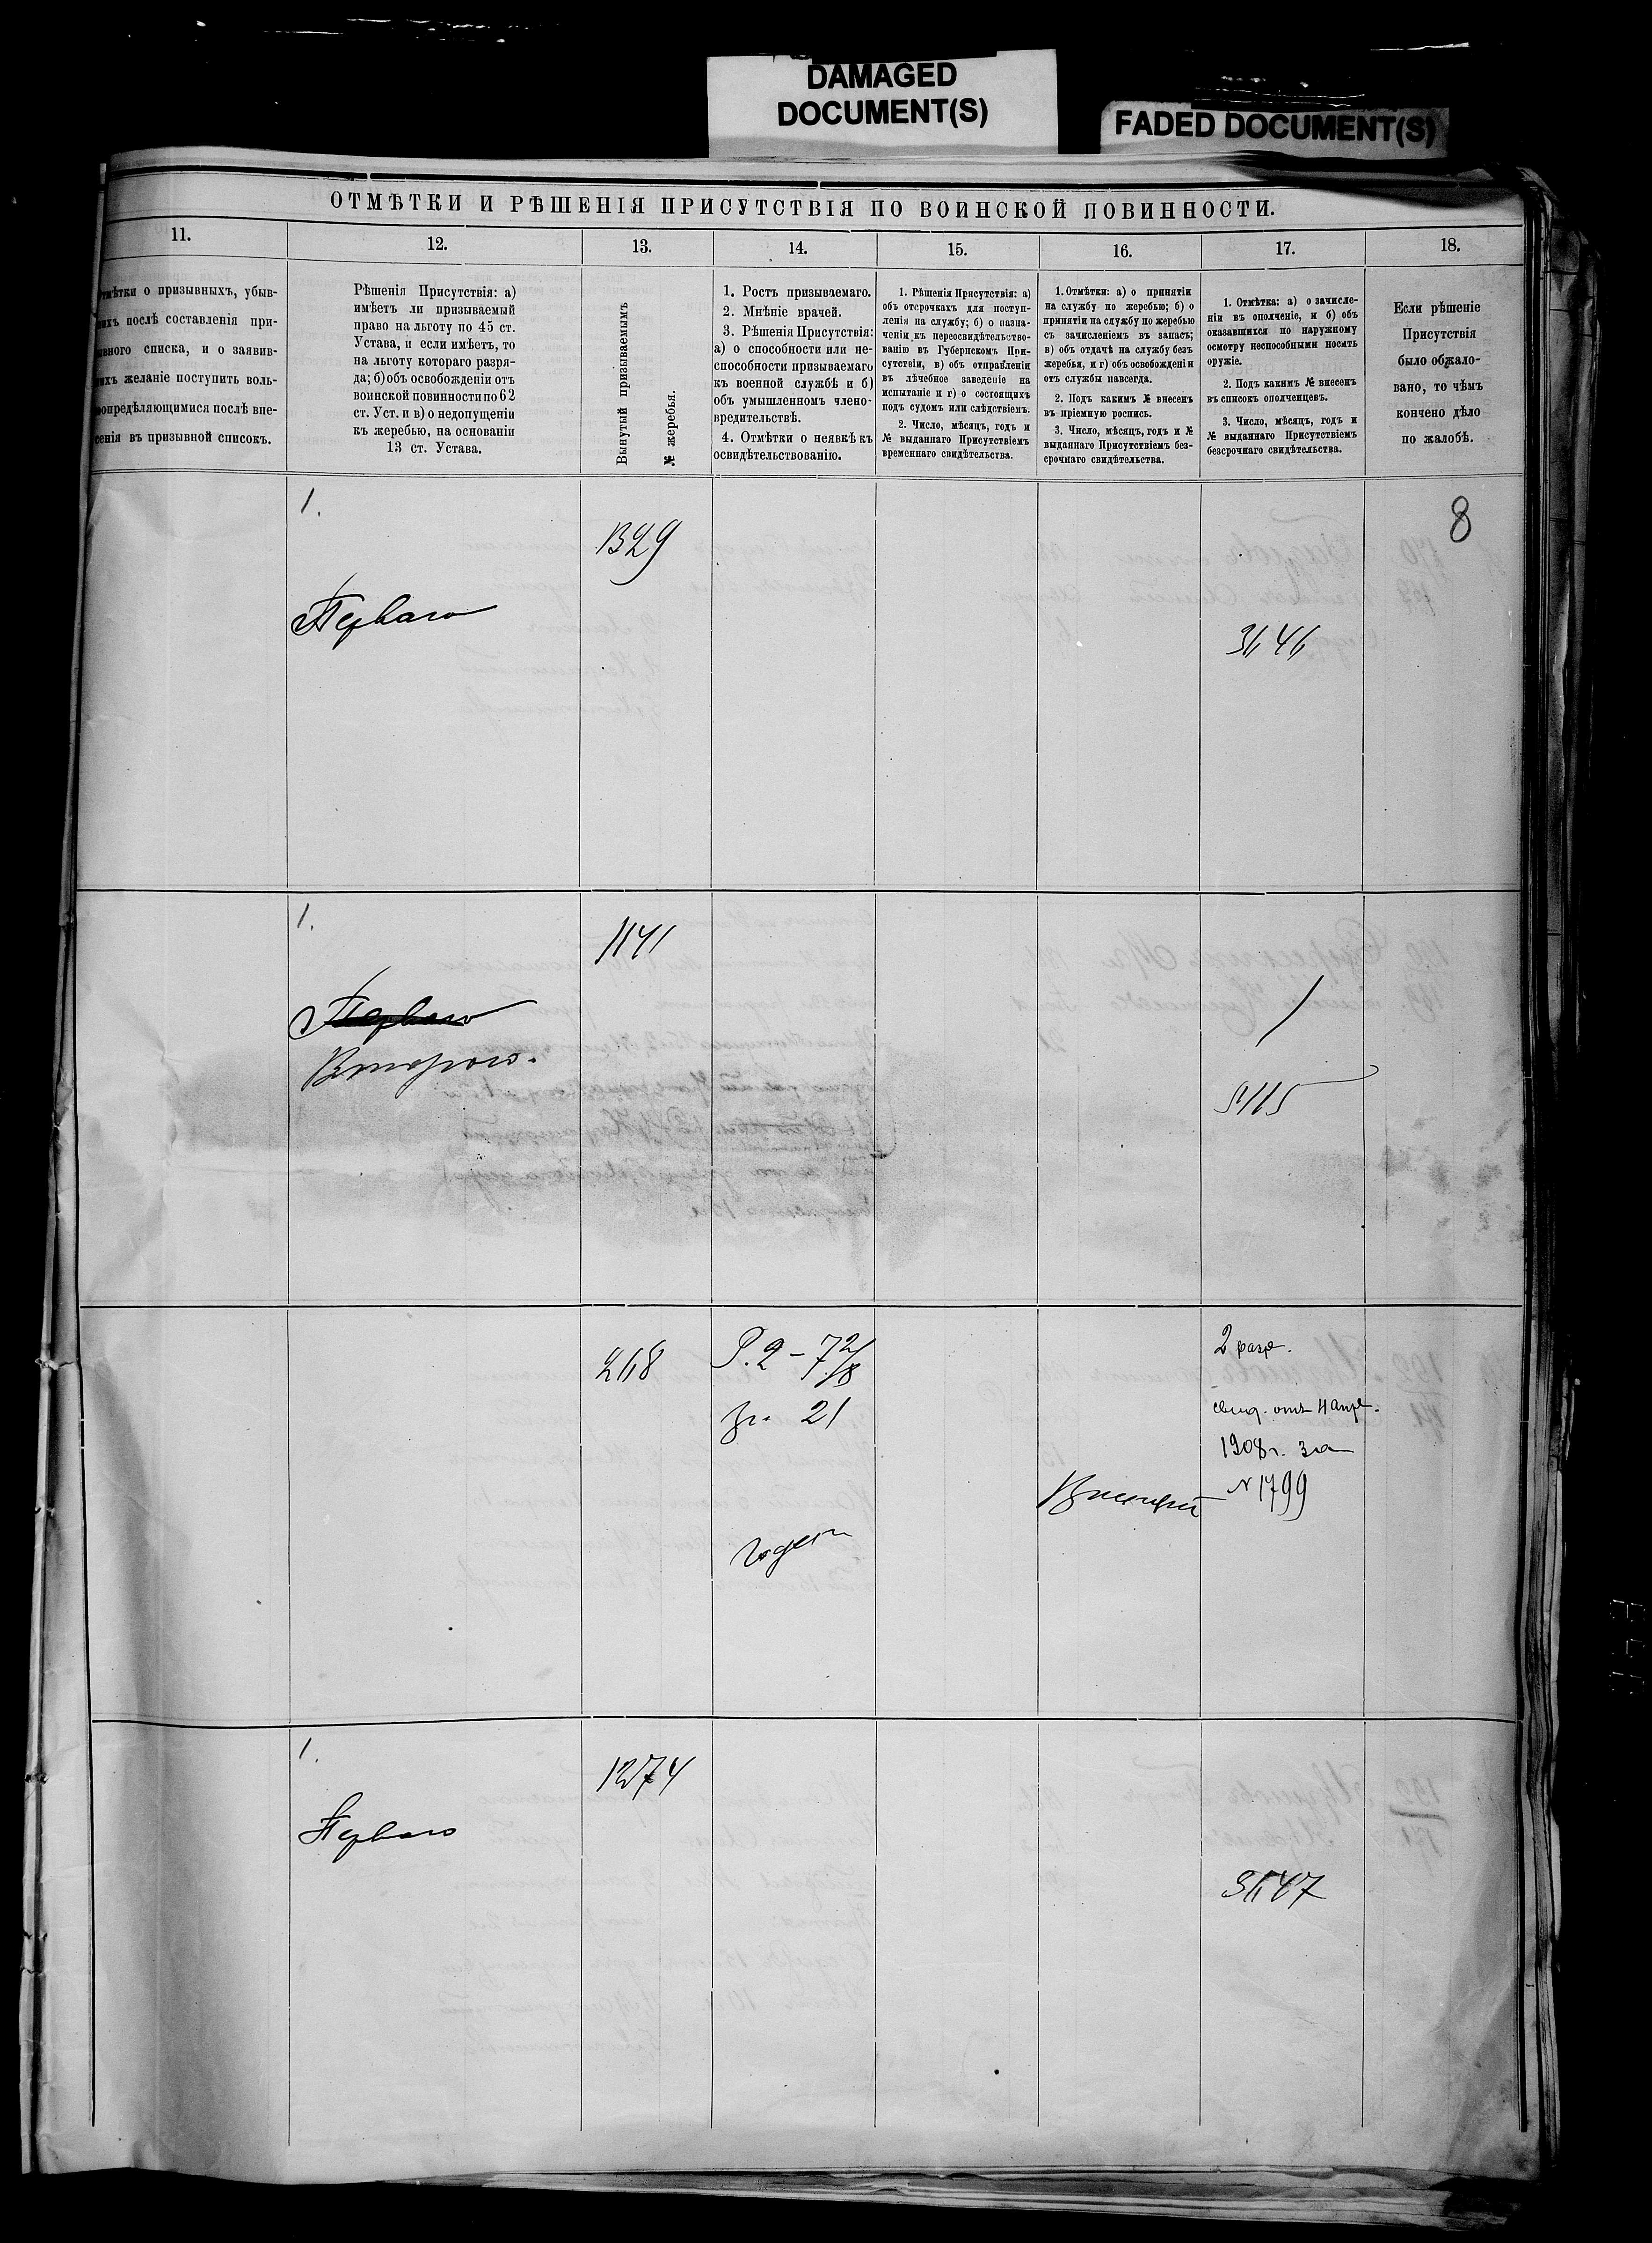 DAMAGED
DOCUMENT(S)
FADED DOCUMENT(S)
ОТМѢТКИ И РѢШЕНІЯ ПРИСУТСТВІЯ ПО ВОИНСКОЙ ПОВИННОСТИ.
11.
12.
13.
14.
15.
16.
17.
18.
о призывныхъ, убыв-
послѣ составленія при-
списка, и о заявив-
желаніе поступить воль-
ноопредѣляющимися послѣ вне-
сенія въ призывной списокъ.
Рѣшенія Присутствія: а)
имѣетъ ли призываемый
право на льготу по 45 ст.
Устава, и если имѣетъ, то
на льготу котораго разря-
да; б) объ освобожденіи отъ
воинской повинности по 62
ст. Уст. и в) о недопущеніи
къ жеребью, на основаніи
13 ст. Устава.
Вынутый призываемымъ
№ жеребья.
1. Ростъ призываемаго.
2. Мнѣніе врачей.
3. Рѣшенія Присутствія:
а) о способности или не-
способности призываемаго
къ военной службѣ и б)
объ умышленномъ члено-
вредительствѣ.
4. Отмѣтки о неявкѣ къ
освидѣтельствованію.
1. Рѣшенія Присутствія: а)
объ отсрочкахъ для поступ-
ленія на службу; б) о назна-
ченіи къ переосвидѣтельство-
ванію въ Губернскомъ При-
сутствіи, в) объ отправленіи
въ лѣчебное заведеніе на
испытаніе и г) о состоящихъ
подъ судомъ или слѣдствіемъ.
2. Число, мѣсяцъ, годъ и
№ выданнаго Присутствіемъ
временнаго свидѣтельства.
1. Отмѣтки: а) о принятіи
на службу по жеребью; б) о
принятіи на службу по жеребью
съ зачисленіемъ въ запасъ;
в) объ отдачѣ на службу безъ
жеребья, и г) объ освобожденіи
отъ службы навсегда.
2. Подъ какимъ № внесенъ
въ пріемную роспись.
3. Число, мѣсяцъ, годъ и №
выданнаго Присутствіемъ без-
срочнаго свидѣтельства.
1. Отмѣтка: а) о зачисле-
ніи въ ополченіе, и б) объ
оказавшихся по наружному
осмотру неспособными носить
оружіе.
2. Подъ какимъ № внесенъ
въ списокъ ополченцевъ.
3. Число, мѣсяцъ, годъ и
№ выданнаго Присутствіемъ
безсрочнаго свидѣтельства.
Если рѣшеніе
Присутствія
было обжало-
вано, то чѣмъ
кончено дѣло
по жалобѣ.
8
1.
1329
Перваго
3646
1.
1141
Перваго
Второго.
5115
268
Р. 2 - 7 2/8
гр. 21
годен
2 разр.
свид. отъ 4 апр.
1908 г. за
№ 1799
1.
1274
Перваго
3647